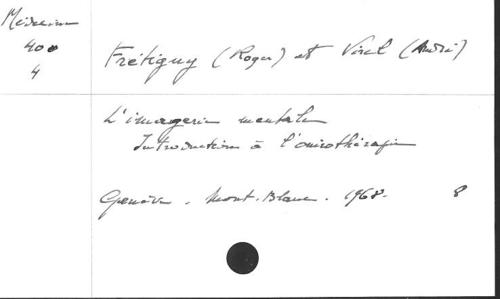 Médecine
400
4
Frétigny (Roger) et Virel (André)
L'imagerie mentale
Introduction à l'onirothérapie
Genève. Mont-Blanc. 1968. 8